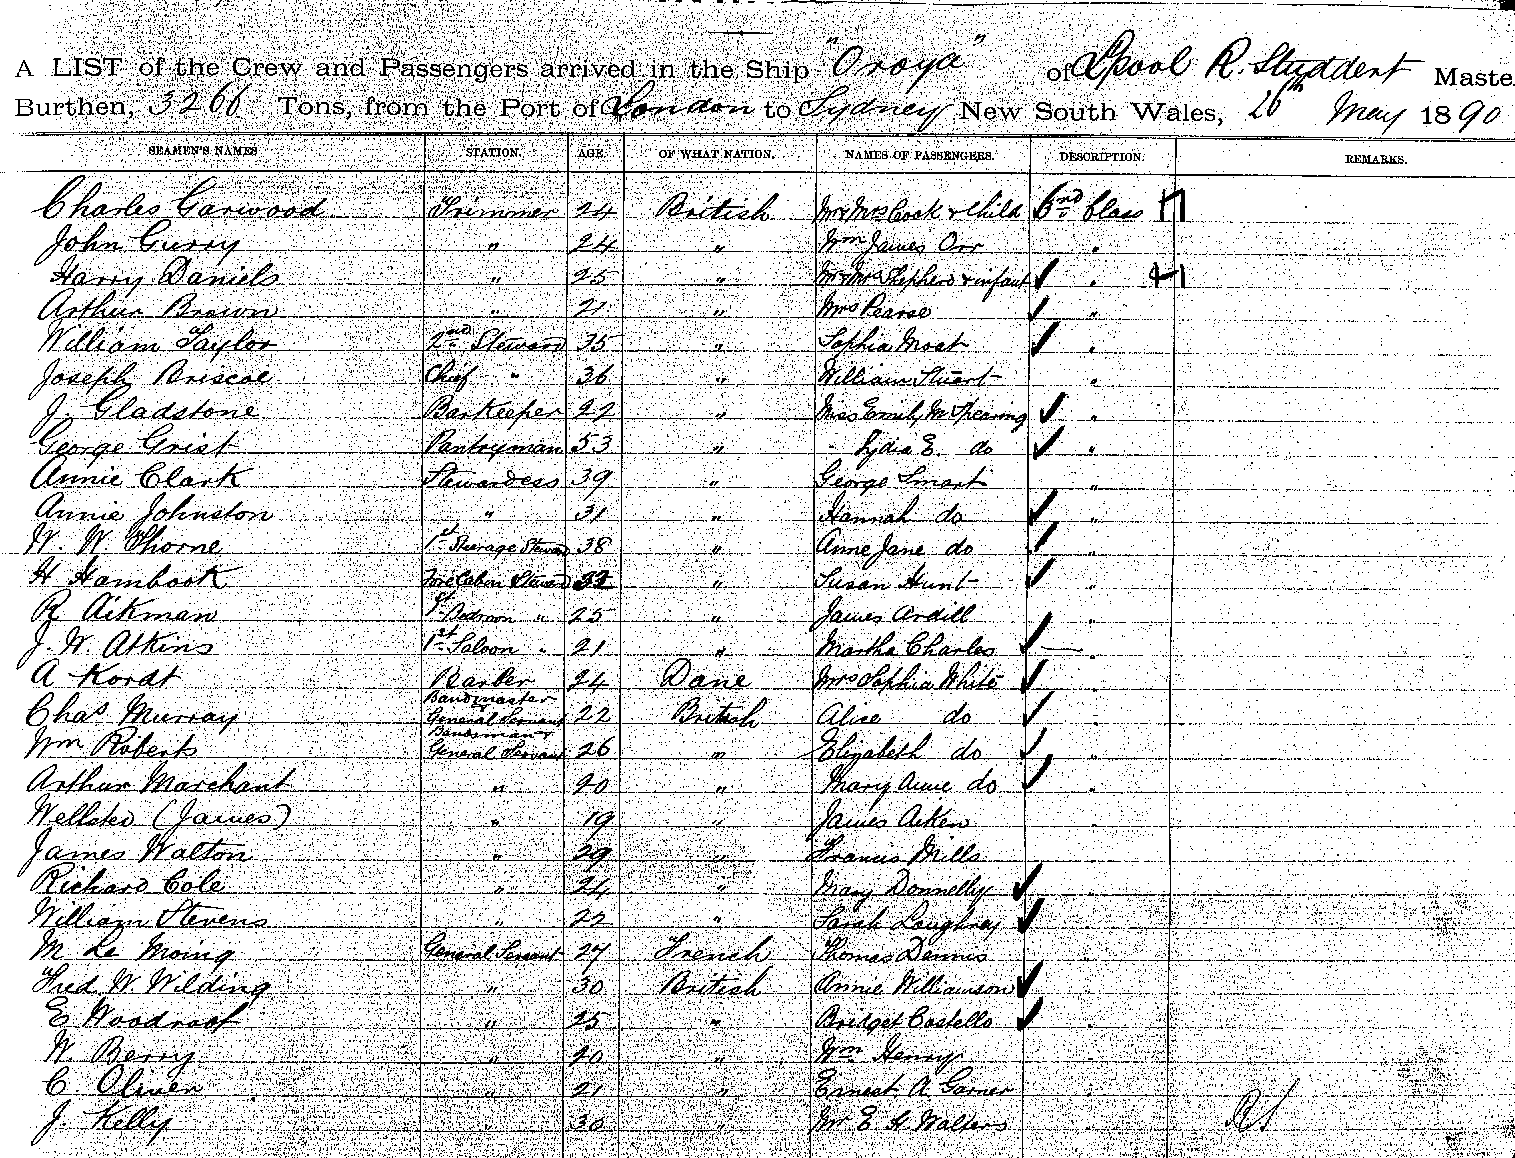 A LIST of the Crew and Passengers arrived in the Ship "Oroya" of Lpool R. Studdert Maste
Burthen, 3266 Tons, from the Port of London to Sydney New South Wales, 26th May 1890
SEAMEN'S NAMES STATION. AGE. OF WHAT NATION. NAMES OF PASSENGERS. DESCRIPTION. REMARKS.
Charles Garwood Trimmer 24 British Mr & Mrs Cook & Child 2nd Class
John Gurry " 24 " Wm James Orr "
Harry Daniels " 25 " Mr & Mrs Shepherd & infant "
Arthur Brown " 21 " Mrs Pearse "
William Taylor 2nd Steward 35 " Sophia Moat "
Joseph Briscoe Chief " 36 " William Stuart "
J. Gladstone Barkeeper 22 " Miss Emily M Spearing "
George Grist Pantryman 53 " " Lydia E. do "
Annie Clark Stewardess 39 " George Smart "
Annie Johnston " 31 " Hannah do "
W. W. Thorne 1st Steerage Steward 38 " Anne Jane do "
H Hambook Fore Cabin Steward " Susan Hunt "
R Aikman 1st Bedroom " 25 " James Ardill "
J. W. Atkins 1st Saloon " 21 " Martha Charles "
A Kordt Barber 24 Dane Mrs Sophia White "
Chas Murray Bandmaster General Servant 22 British Alice do "
Wm Roberts Bandsman & General Servant 26 " Elizabeth do "
Arthur Marchant " 20 " Mary Anne do "
Wellsted (James) " 19 " James Aiken "
James Walton " 29 " Francis Mills
Richard Cole " 24 " Mary Donnelly "
William Stevens " 22 " Sarah Loughrey "
M Le Moing General Servant 27 French Thomas Dennis
Fred W. Wilding " 30 British Annie Williamson "
E Woodroof " 25 " Bridget Costello "
W. Berry " 20 " Wm Henry "
C. Oliver " 21 " Ernest A Garner "
J. Kelly " 30 " Mr E H Walters "
RS